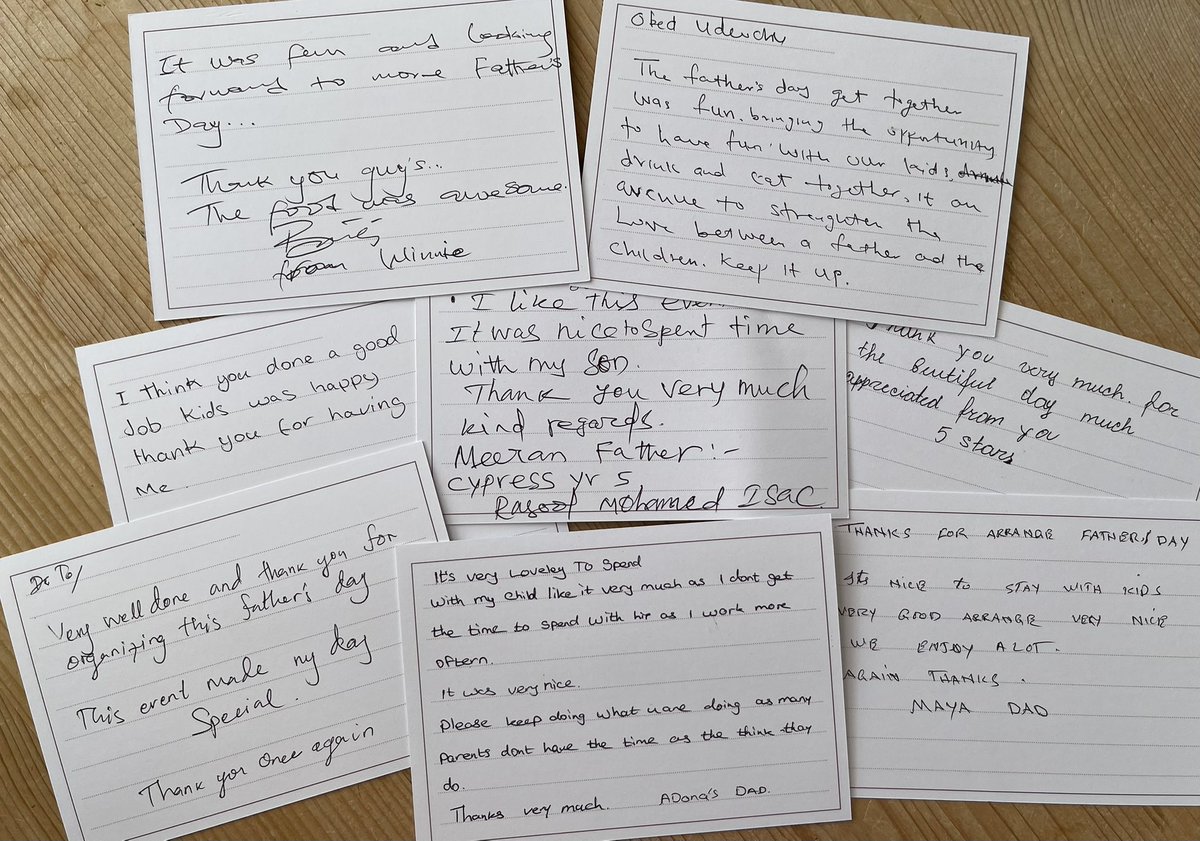 It was fun and looking
forward to more Father's
Day...
Thank you guy's...
The food was awesome.
from Winnie
Obed Udenchu
The father's day get together
was fun. bringing the opportunity
to have fun with our kids,
drink and eat together, it an
avenue to strenghten the
Love between a father and the
children. Keep it up.
I think you done a good
Job kids was happy
thank you for having
Me.
I like this
It was nice to spent time
with my Son.
Thank you very much
kind regards.
Meeran Father:-
cypress yr 5
Rasool Mohamed Isac.
Thank you very much. for
the beutiful day much
appreciated from you
5 stars
Very well done and thank you for
organizing this father's day
This event made my day
Special.
Thank you once again
It's very Loveley To Spend
with my child like it very much as I dont get
the time to spend with hir as I work more
oftern.
It was very nice.
Please keep doing what u are doing as many
Parents dont have the time as the think thay
do.
Thanks very much. ADona's DAD.
THANKS FOR ARRANGE FATHER'S DAY
its NICE to STAY WITH KIDS
VERY GOOD ARRANGE VERY NICE
WE ENJOY A LOT.
AGAIN THANKS.
MAYA DAD